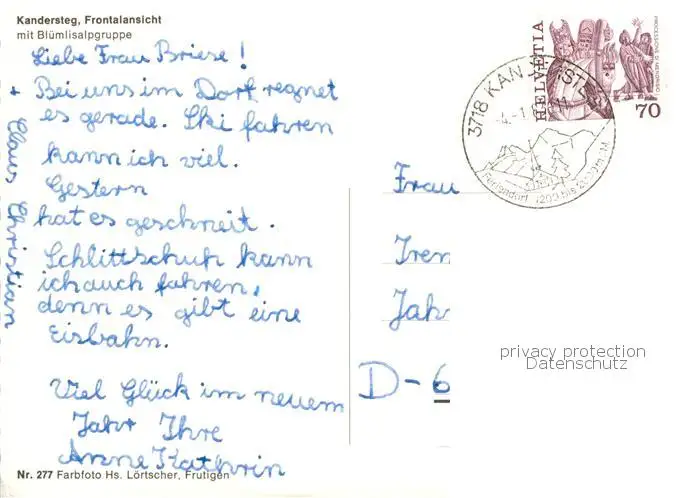 Kandersteg, Frontalansicht
mit Blümlisalpgruppe
Liebe Frau Briese!
Bei uns im Dorf regnet
es gerade. Ski fahren
kann ich viel.
Gestern
hat es geschneit.
Schlittschuh kann
ich auch fahren,
denn es gibt eine
Eisbahn.
Viel Glück im neuem
Jahr Ihre
Anne Kathrin
+ Claus Christian
Nr. 277 Farbfoto Hs. Lörtscher, Frutigen
HELVETIA
70
3718 KANDERSTEG
Feriendorf 1200 bis 2000 m
Frau
Iren
Jahr
D-6
privacy protection
Datenschutz